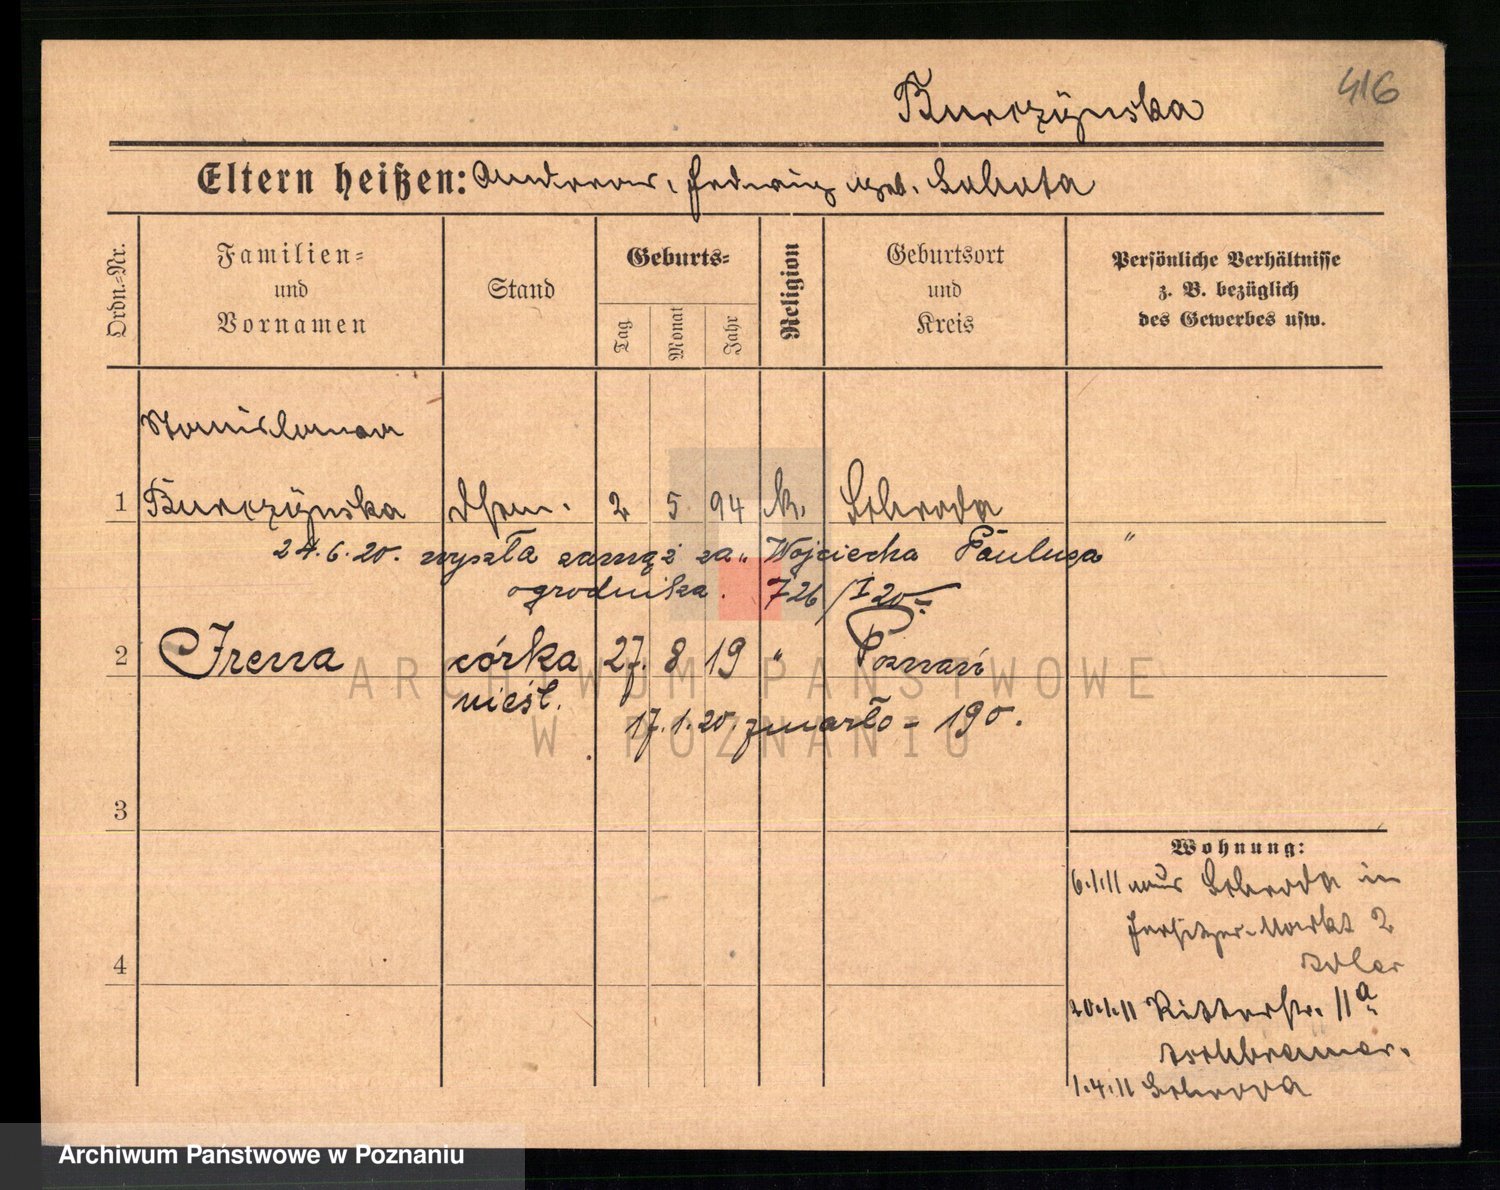 416
Burczyńska
Eltern heißen: Andreas, Hedwig geb. Sobota
Ordn.-Nr.
Familien- und Vornamen
Stand
Geburts-
Tag
Monat
Jahr
Religion
Geburtsort und Kreis
Persönliche Verhältnisse
z. B. bezüglich
des Gewerbes usw.
Stanislawa
1 Burczyńska 2 5 94 k. Schroda
24.6.20. wyszła zamąż za „Wojciecha Paulusa"
ogrodnika. 726/I 20
2 Irena córka 27. 8 19 " Poznań
nieśl.
17.1.20. zmarło - 190.
3
4
Wohnung:
6.1.11 aus Schroda in
Jersitzer-Markt 2
20.1.11 Ritterstr. 11a
1.4.11 Schroda
ARCHIWUM PAŃSTWOWE
W POZNANIU
Archiwum Państwowe w Poznaniu